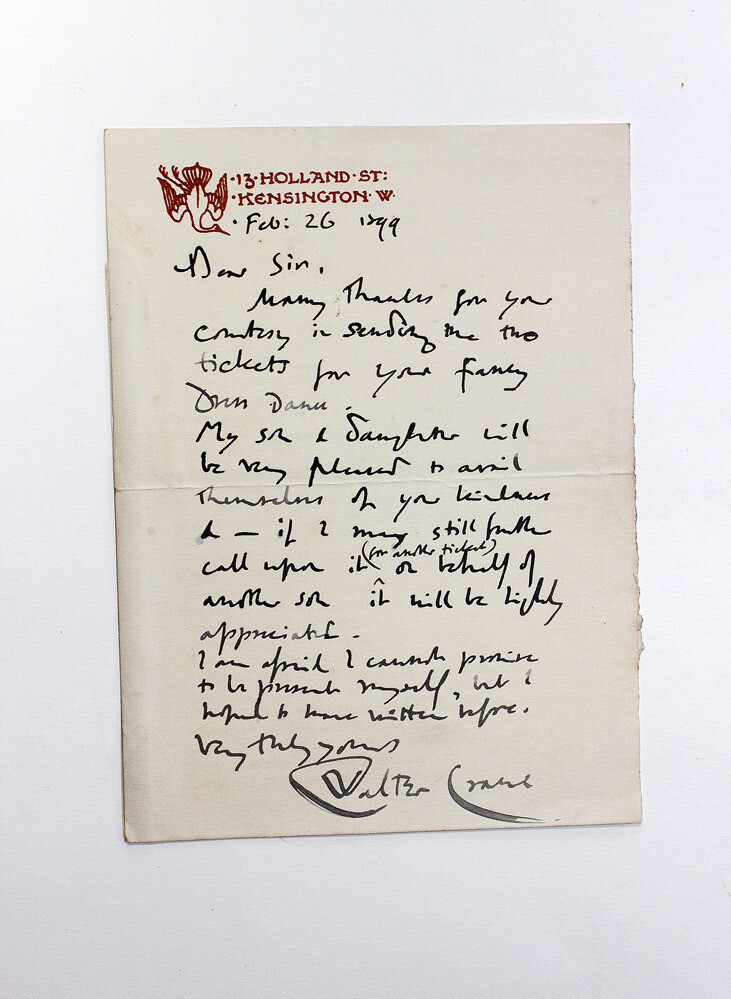 ·13·HOLLAND·ST:
·KENSINGTON·W·
· Feb: 26 1899
Dear Sir,
Many thanks for your
courtesy in sending me two
tickets for your Fancy
Dress Dance.
My son & daughter will
be very pleased to avail
themselves of your kindness
& — if I may still further
call upon it (for another ticket) on behalf of
another son it will be highly
appreciated.
I am afraid I cannot promise
to be present myself, but I
hoped to have written before.
Very truly yours
Walter Crane